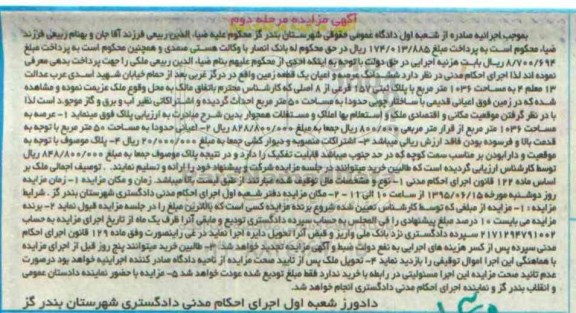 آگهی مزایده مرحله دوم
بموجب اجرائیه صادره از شعبه اول دادگاه عمومی حقوقی شهرستان بندر گز محکوم علیه ضیاء الدین ربیعی فرزند آقا جان و بهنام ربیعی فرزند
ضیاء محکوم است به پرداخت مبلغ ۱۷۴/۰۱۳/۸۸۵ ریال در حق محکوم له بانک انصار با وکالت هستی صمدی و همچنین محکوم است به پرداخت مبلغ
۸/۷۰۰/۶۹۴ ریال بابت هزینه اجرایی در حق دولت با توجه به اینکه احدی از محکوم علیهم بنام ضیاء الدین ربیعی ملکی را جهت پرداخت بدهی معرفی
نموده اند لذا اجرای احکام مدنی در نظر دارد ششدانگ عرصه و اعیان یک قطعه زمین واقع در در گز غربی بعد از حمام خیابان شهید اسدی عرب عدالت
۱۳ معلم ۲ به مساحت ۱۰۳۶ متر مربع با پلاک ثبتی ۱۵۷ فرعی از ۸ اصلی که کارشناس محترم باتفاق مالک به محل وقوع ملک عزیمت نموده و مشاهده
شده که در زمین فوق اعیانی قدیمی با ساختار چوبی حدودا به مساحت ۵۰ متر مربع احداث گردیده و اشتراکاتی نظیر آب و برق و گاز موجود است لذا
با در نظر گرفتن موقعیت مکانی و اقتصادی ملک و استعلام بها املاک و مستغلات همجوار بدین شرح مبادرت به ارزیابی پلاک فوق مینماید ۱- عرصه به
مساحت ۱۰۳۶ متر مربع از قرار متر مربعی ۸۰۰/۰۰۰ ریال جمعا به مبلغ ۸۲۸/۸۰۰/۰۰۰ ریال ۲- اعیانی حدودا به مساحت ۵۰ متر مربع با توجه به
قدمت بالا و فرسوده بودن فاقد ارزش ریالی میباشد ۳- اشتراکات منصوبه و دیوار کشی جمعا به مبلغ ۲۰/۰۰۰/۰۰۰ ریال ۴- پلاک موصوف با توجه به
موقعیت و دارا بودن بر مناسب سمت کوچه که در حد جنوب میباشد قابلیت تفکیک را دارد و در نتیجه پلاک موصوف جمعا به مبلغ ۸۴۸/۸۰۰/۰۰۰ ریال
توسط کارشناس ارزیابی گردیده است که طالبین خرید میتوانند در جلسه مزایده شرکت و پیشنهاد خود را ارائه و تسلیم نمایند. توصیف اجمالی ملک بر
اساس ماده ۱۲۲ قانون اجرای احکام مدنی ۱- نوع و مشخصات مال توقیف شده عبارتند از طبق لیست بالا میباشد. زمان و مکان مزایده ۱- زمان مزایده
روز دوشنبه مورخه ۱۳۹۵/۰۶/۱۵ از ساعت ۱۰ الی ۱۲ ۲- مکان مزایده دفتر شعبه اول اجرای احکام مدنی دادگستری شهرستان بندر گز. شرایط
مزایده: ۱- مزایده از مبلغی که توسط کارشناس تعیین شده شروع برنده مزایده کسی است که بالاترین مبلغ را در جلسه مزایده قبول نماید ۲- برنده
مزایده می بایست ۱۰ درصد مبلغ پیشنهادی را فی المجلس به حساب سپرده دادگستری تودیع و مابقی آنرا ظرف یک ماه از تاریخ اجرای مزایده به حساب
۲۱۷۱۲۹۴۷۹۱۰۰۲ سپرده دادگستری نزد بانک ملی واریز و قبض آنرا تحویل دایره اجرا نماید در غیر اینصورت وفق ماده ۱۲۹ قانون اجرای احکام
مدنی سپرده پس از کسر هزینه های اجرایی به نفع دولت ضبط و آگهی مزایده تجدید خواهد شد ۳- طالبین خرید میتوانند پنج روز قبل از اجرای مزایده
با هماهنگی این اجرا اموال توقیفی را بازدید نماید ۴- تحویل ملک پس از تایید صحت مزایده از ناحیه دادگاه صادر کننده اجرائیه خواهد بود درصورت
عدم تائید صحت مزایده این اجرا مسئولیتی در رابطه با خرید ندارد فقط مبلغ تودیع شده عودت خواهد شد ۵- مزایده با حضور نماینده دادستان عمومی
و انقلاب بندر گز و نماینده اجرای احکام مدنی دادگستری انجام خواهد شد.
دادورز شعبه اول اجرای احکام مدنی دادگستری شهرستان بندر گز